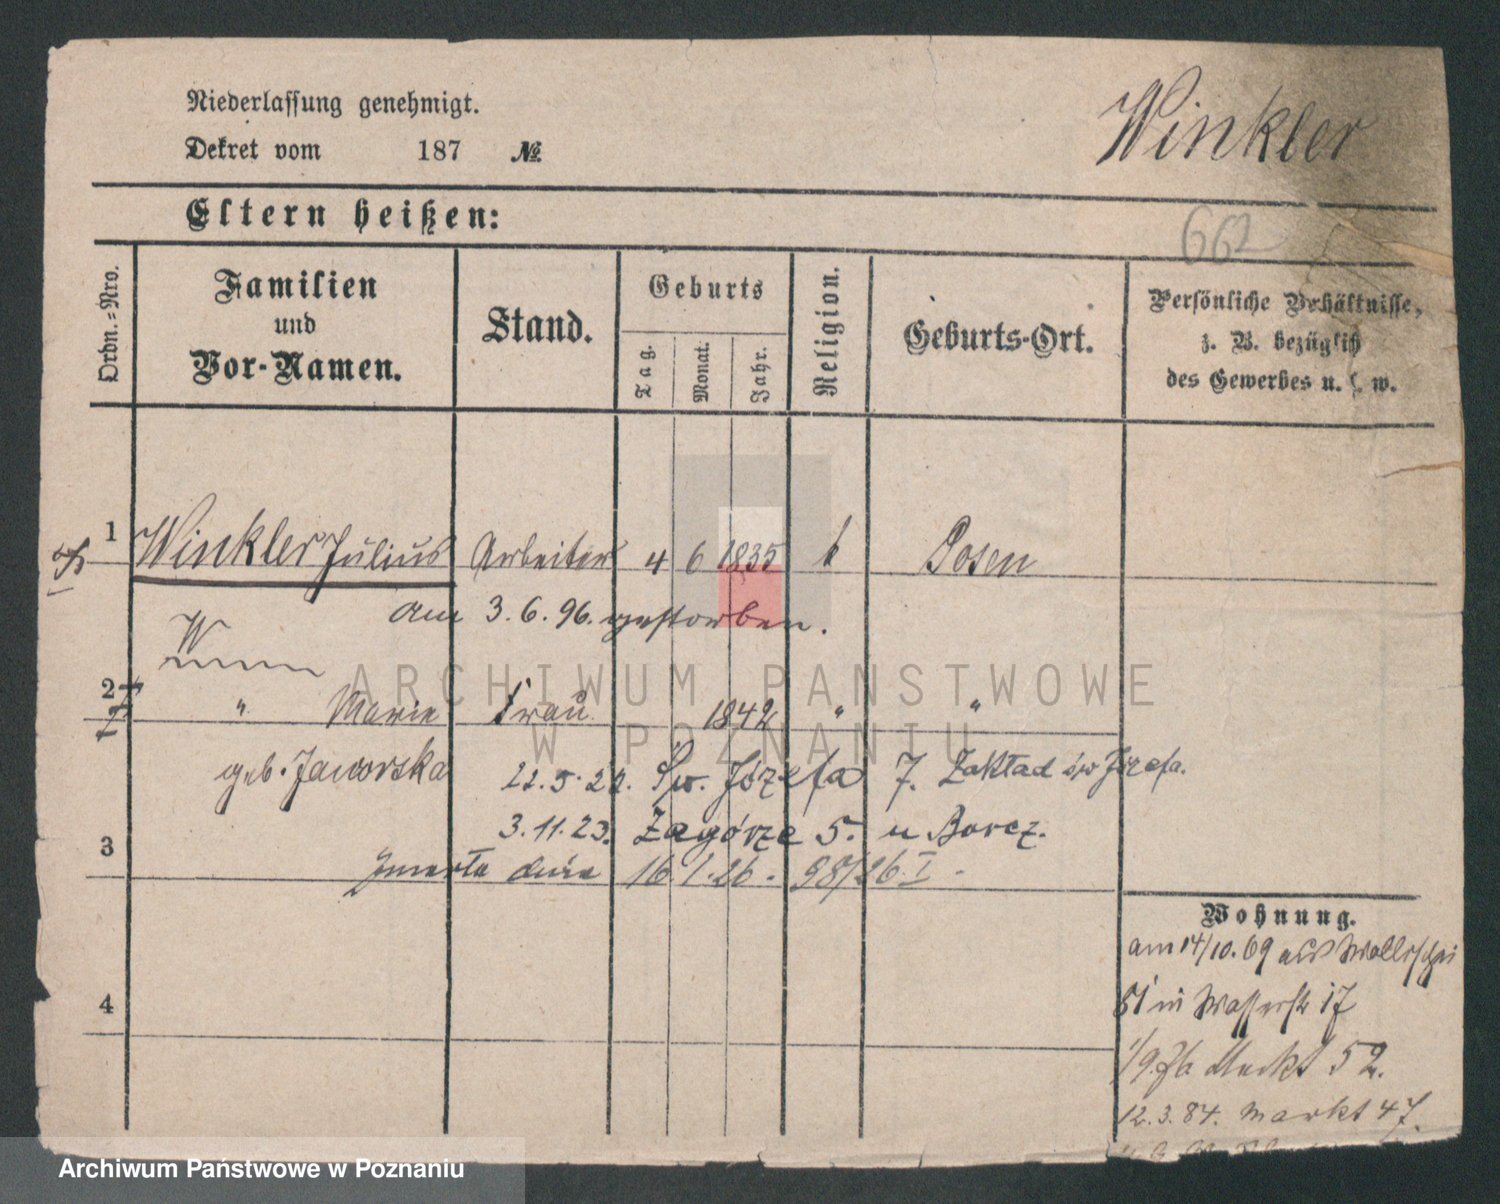 Niederlassung genehmigt.
Dekret vom 187 №
Winkler
Eltern heißen:
662
Ordn.-Nro.
Familien
und
Vor-Namen.
Stand.
Geburts
Tag.
Monat.
Jahr.
Religion.
Geburts-Ort.
Persönliche Verhältnisse,
z. B. bezüglich
des Gewerbes u. s. w.
1 Winkler Julius Arbeiter 4 6 1835 k Posen
am 3.6.96. gestorben.
W
2 " Marie Frau 1842 " "
geb. Jaworska
22.5.22. Św. Józefa 7. Zakład św Józefa.
3.11.23. Zagórze 5. u Borcz.
3
Zmarła dnia 16.1.26. 98/26.I
4
Wohnung.
am 14/10.69 aus Wallischei
51 in Wasserstr 17
Markt 52.
12.3.84. Markt 47.
ARCHIWUM PAŃSTWOWE
W POZNANIU
Archiwum Państwowe w Poznaniu